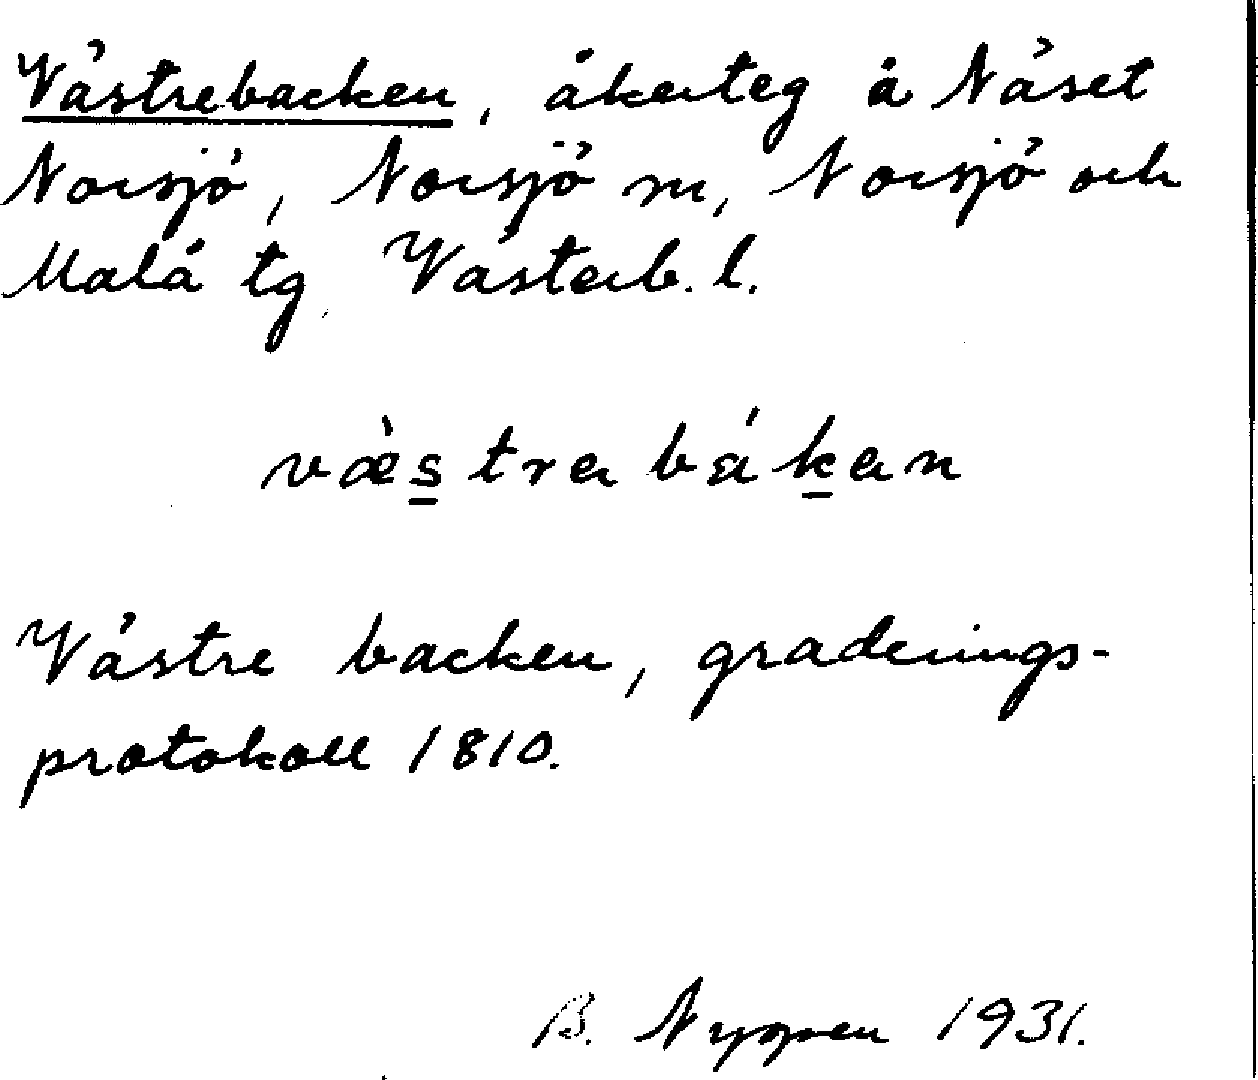 Västrebacken, åkerteg å Näset
Norsjö, Norsjö sn, Norsjö och
Malå tg Västerb. l.
væ̀s̲trabák̲an
Västre backen, graderings-
protokoll 1810.
B. Nygren 1931.